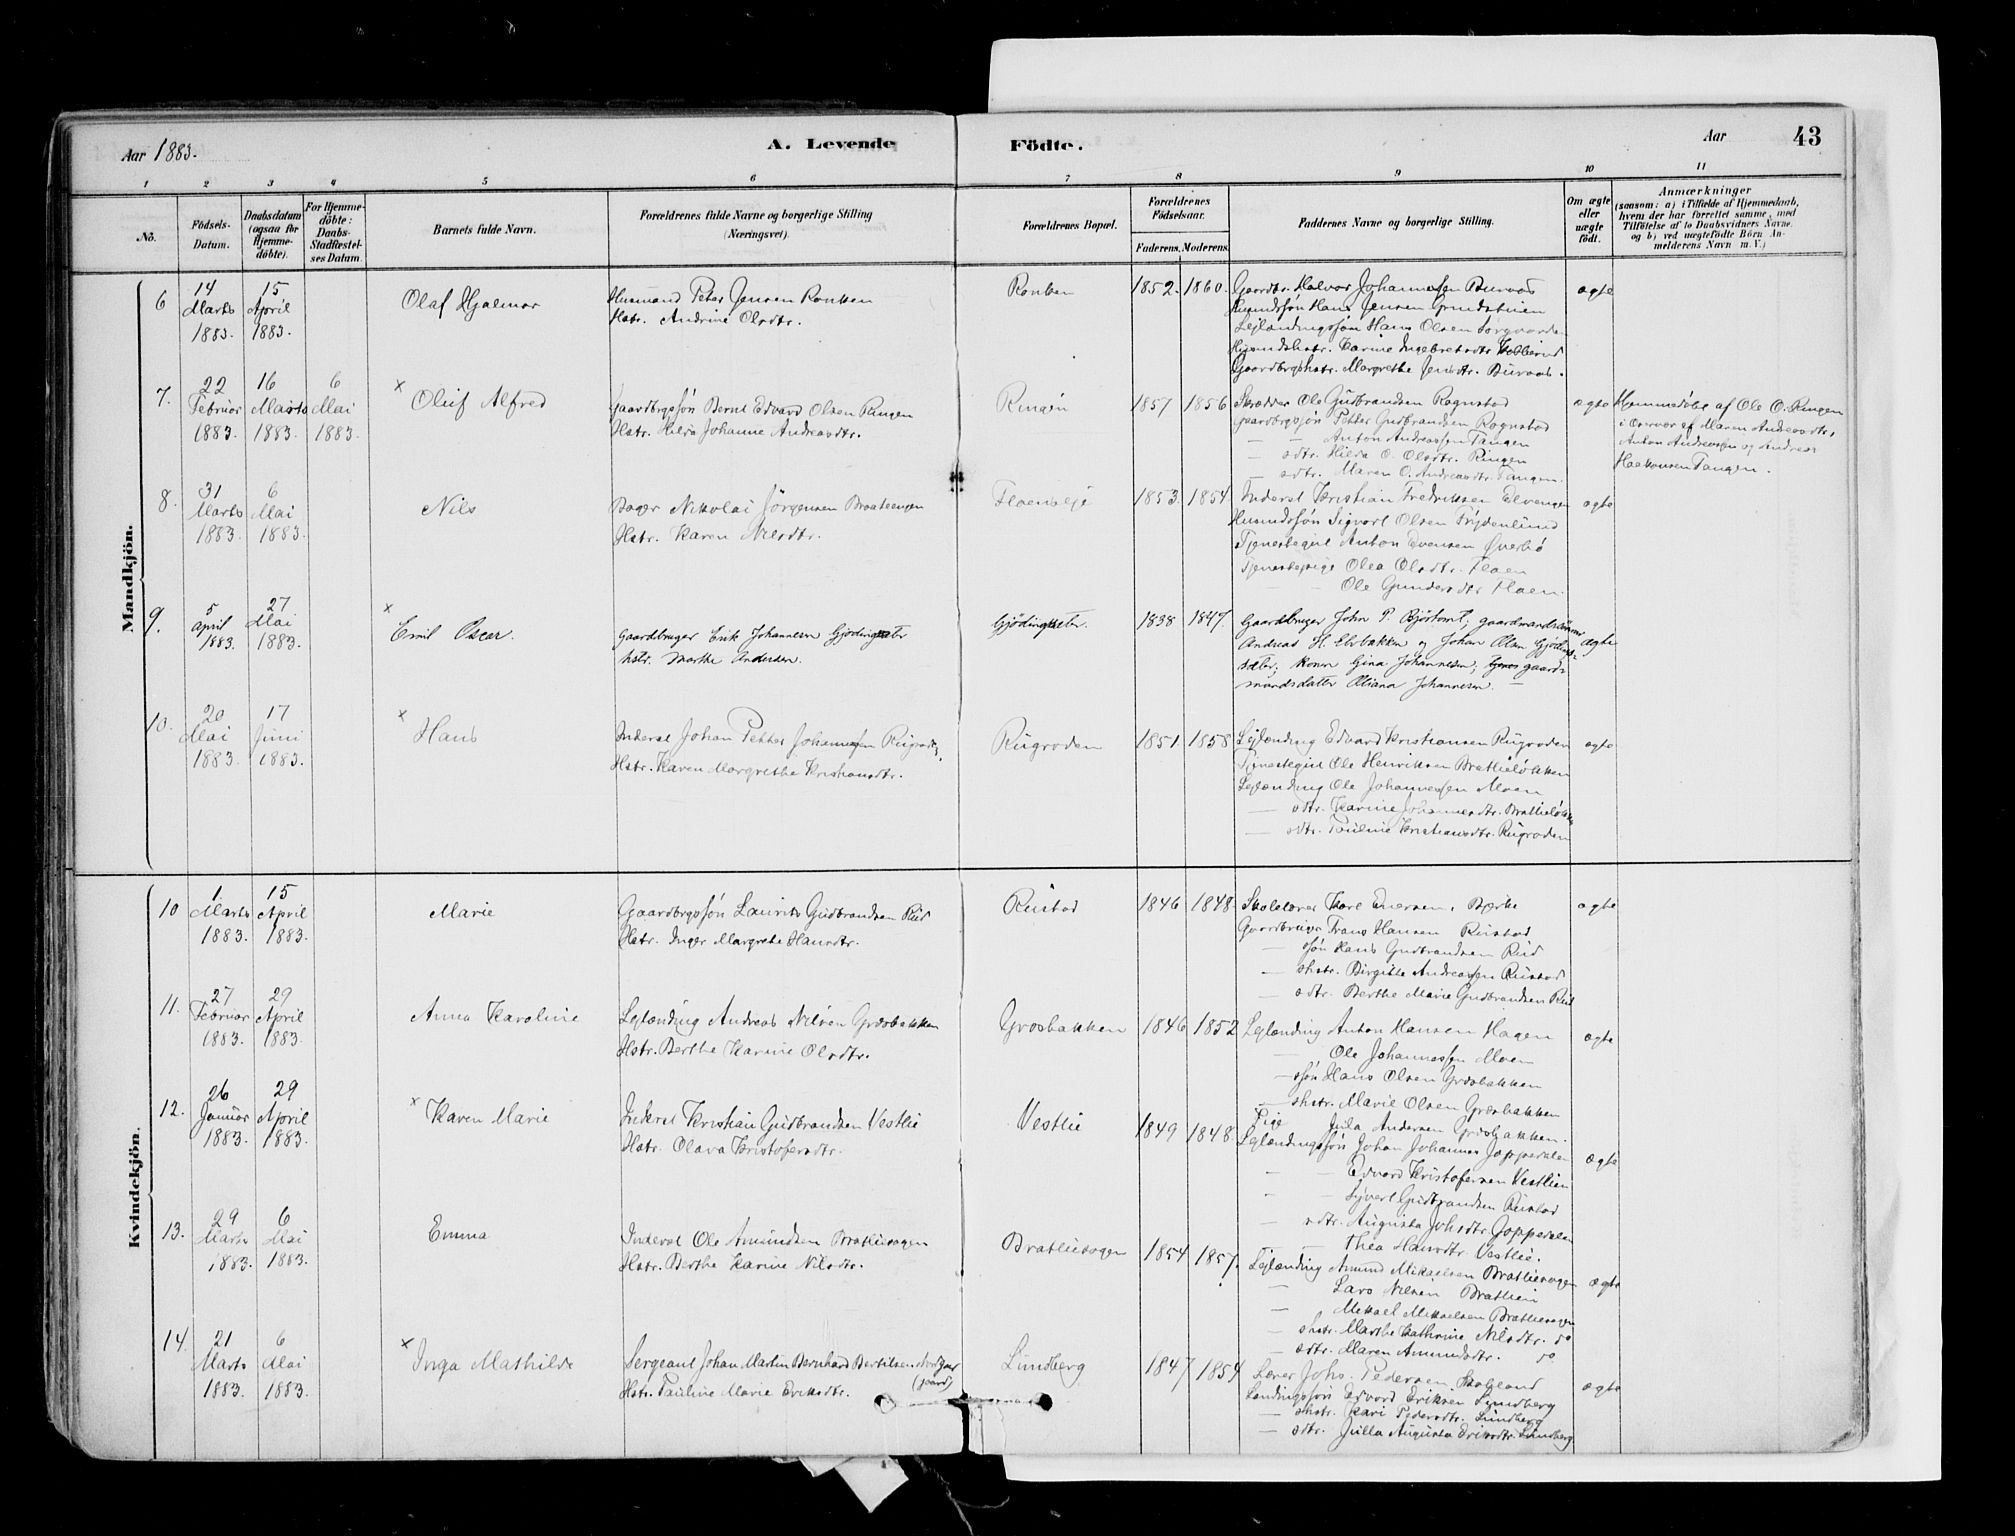 Aar 1883.
A. Levende Födte.
Aar
43
1 2 3 4 5 6 7 8 9 10 11
No.
Födsels-
Datum.
Daabsdatum
(ogsaa for
Hjemme-
döbte).
For Hjemme-
döbte:
Daabs-
Stadfæstel-
ses Datum.
Barnets fulde Navn.
Forældrenes fulde Navne og borgerlige Stilling
(Næringsvei).
Forældrenes Bopæl.
Forældrenes
Födselsaar.
Faderens. Moderens.
Faddernes Navne og borgerlige Stilling.
Om ægte
eller
uægte
födt.
Anmærkninger
(saasom: a) i Tilfælde af Hjemmedaab,
hvem der har forrettet samme, med
Tilföielse af to Daabsvidners Navne.
og b) ved uægtefödte Börn An-
melderens Navn m. V.)
Mandkjön.
6
14
Marts
1883.
15
April
1883.
Olaf Hjalmar
Husmand Peter Jensen Ronken
Hstr. Andrine Olsdtr.
Ronken
1852. 1860.
Gaardbr. Halvor Johannessen Buraas
Husmdssøn Hans Jensen Grindstuen
Leilændingssøn Hans Olsen
Husmdshstr. Karine Ingebretsdtr.
Gaardbrgshstr. Margrethe Jensdtr. Buraas.
ægte
7.
22
Februar
1883.
16
Marts
1883.
6
Mai
1883.
× Oluf Alfred
Gaardbrgssøn Bernt Edvard Olsen Ringen
Hstr. Hilda Johanne Andreasdtr.
Ringen
1857 1856
Skrædder Ole Gudbrandsen Rognstad
Gaardbrgssøn Petter Gudbrandsen Rognstad
— — Anton Andreassen Tangen
— sdtr. Hilda O. Olsdtr. Ringen
— sdtr. Maren O. Andreasdtr. Tangen
ægte
Hjemmedøbt af Ole O. Ringen
i Overvær af Maren Andreasdtr,
Anton Andreassen og Andreas
Haakensen Tangen.
8.
31
Marts
1883.
6
Mai
1883.
Nils
Bager Nikolai Jörgensen Braateengen
Hstr. Karen Nilsdtr.
Floenseje
1853. 1854.
Inderst Kristian Fredriksen Elvengen
Husmdssøn Sigvart Olsen Frydenlund
Tjenestegut Anton Evensen Øverbø
Tjenestepige Olea Olsdtr. Floen
— Ole Gundersdtr. Floen.
ægte
9.
5
april
1883.
27
Mai
1883.
× Emil Oscar.
Gaardbruger Erik Johannesen Gjødingsæter
hstr. Marthe Andersen.
Gjødingsæter.
1838 1847.
Gaardbruger John P. Bjørtomt, gaardmandssønner
Andreas H. Elvbakken og Johan Olsen Gjødings-
sæter; konen Gina Johannesen; gaard-
mandsdatter Oliana Johannesen. —
ægte
10.
20
Mai
1883.
17
Juni
1883.
× Hans
Inderst Johan Petter Johannessen Rugroden,
Hstr. Karen Margrethe Kristiansdtr.
Rugroden
1851. 1858
Leilænding Edvard Kristiansen Rugroden
Tjenestegut Ole Henriksen Bratlieløkken
Leilænding Ole Johannessen Moen
— sdtr. Karine Johannesdtr. Bratlieløkken
— sdtr. Pauline Kristiansdtr. Rugroden
ægte
Kvindekjön.
10
1
Marts
1883.
15
April
1883.
Marie
Gaardbrgssøn Laurits Gudbrandsen Rud
Hstr. Inger Margrete Hansdtr.
Rustad
1846 1848.
Skolelærer Karl Enersen, Bjerke
Gaardbruger Frans Hansen Rustad
— ssøn Hans Gudbrandsen Rud
— shstr. Birgitte Andreassen Rustad
— sdtr. Berthe Marie Gudbrandsen Rud
ægte
11.
27
Februar
1883.
29
April
1883.
Anna Karoline
Leilænding Andreas Nilsen Græsbakken
Hstr. Berthe Karine Olsdtr.
Græsbakken
1846 1852
Leilænding Anton Hansen Hagen
— Ole Johannessen Moen
— ssøn Hans Olsen Græsbakken
— shstr. Marie Olsen Græsbakken
Pige Jula Andersen Græsbakken.
ægte
12.
26
Januar
1883.
29
April
1883.
× Karen Marie
Inderst Kristian Gudbrandsen Vestlie
Hstr. Olava Kristofersdtr.
Vestlie
1849 1848.
Leilændingssøn Johan Johannes Joppedalen
— — Edvard Kristofersen Vestlien
— — Syvert Gudbrandsen Rustad
— sdtr. Augusta Johsdtr. Joppedalen
— Thea Hansdtr. Vestlie.
ægte
13.
29
Marts
1883.
6
Mai
1883.
Emma
Inderst Ole Amundsen Bratliesagen
Hstr. Berthe Karine Nilsdtr.
Bratliesagen
1854 1857.
Leilænding Amund Mikaelsen Bratliesagen
— Lars Nilsen Bratlien
— Mikael Mikaelsen Bratliesagen
— shstr. Marthe Kathrine Nilsdtr. do
— sdtr. Maren Amundsdtr. do
ægte
14.
21
Marts
1883.
6
Mai
1883.
× Inga Mathilde
Sergeant Johan Martin Bernhard Bertilsen
(gaard)
Hstr. Pauline Marie Eriksdtr.
Lundberg
1847 1854
Lærer Johs. Pedersen, Skøland
Landingssøn Edvard Eriksen Lundberg
— shstr. Kari Pedersdtr. Lundberg
— sdtr. Julla Augusta Eriksdtr. Lundberg
ægte